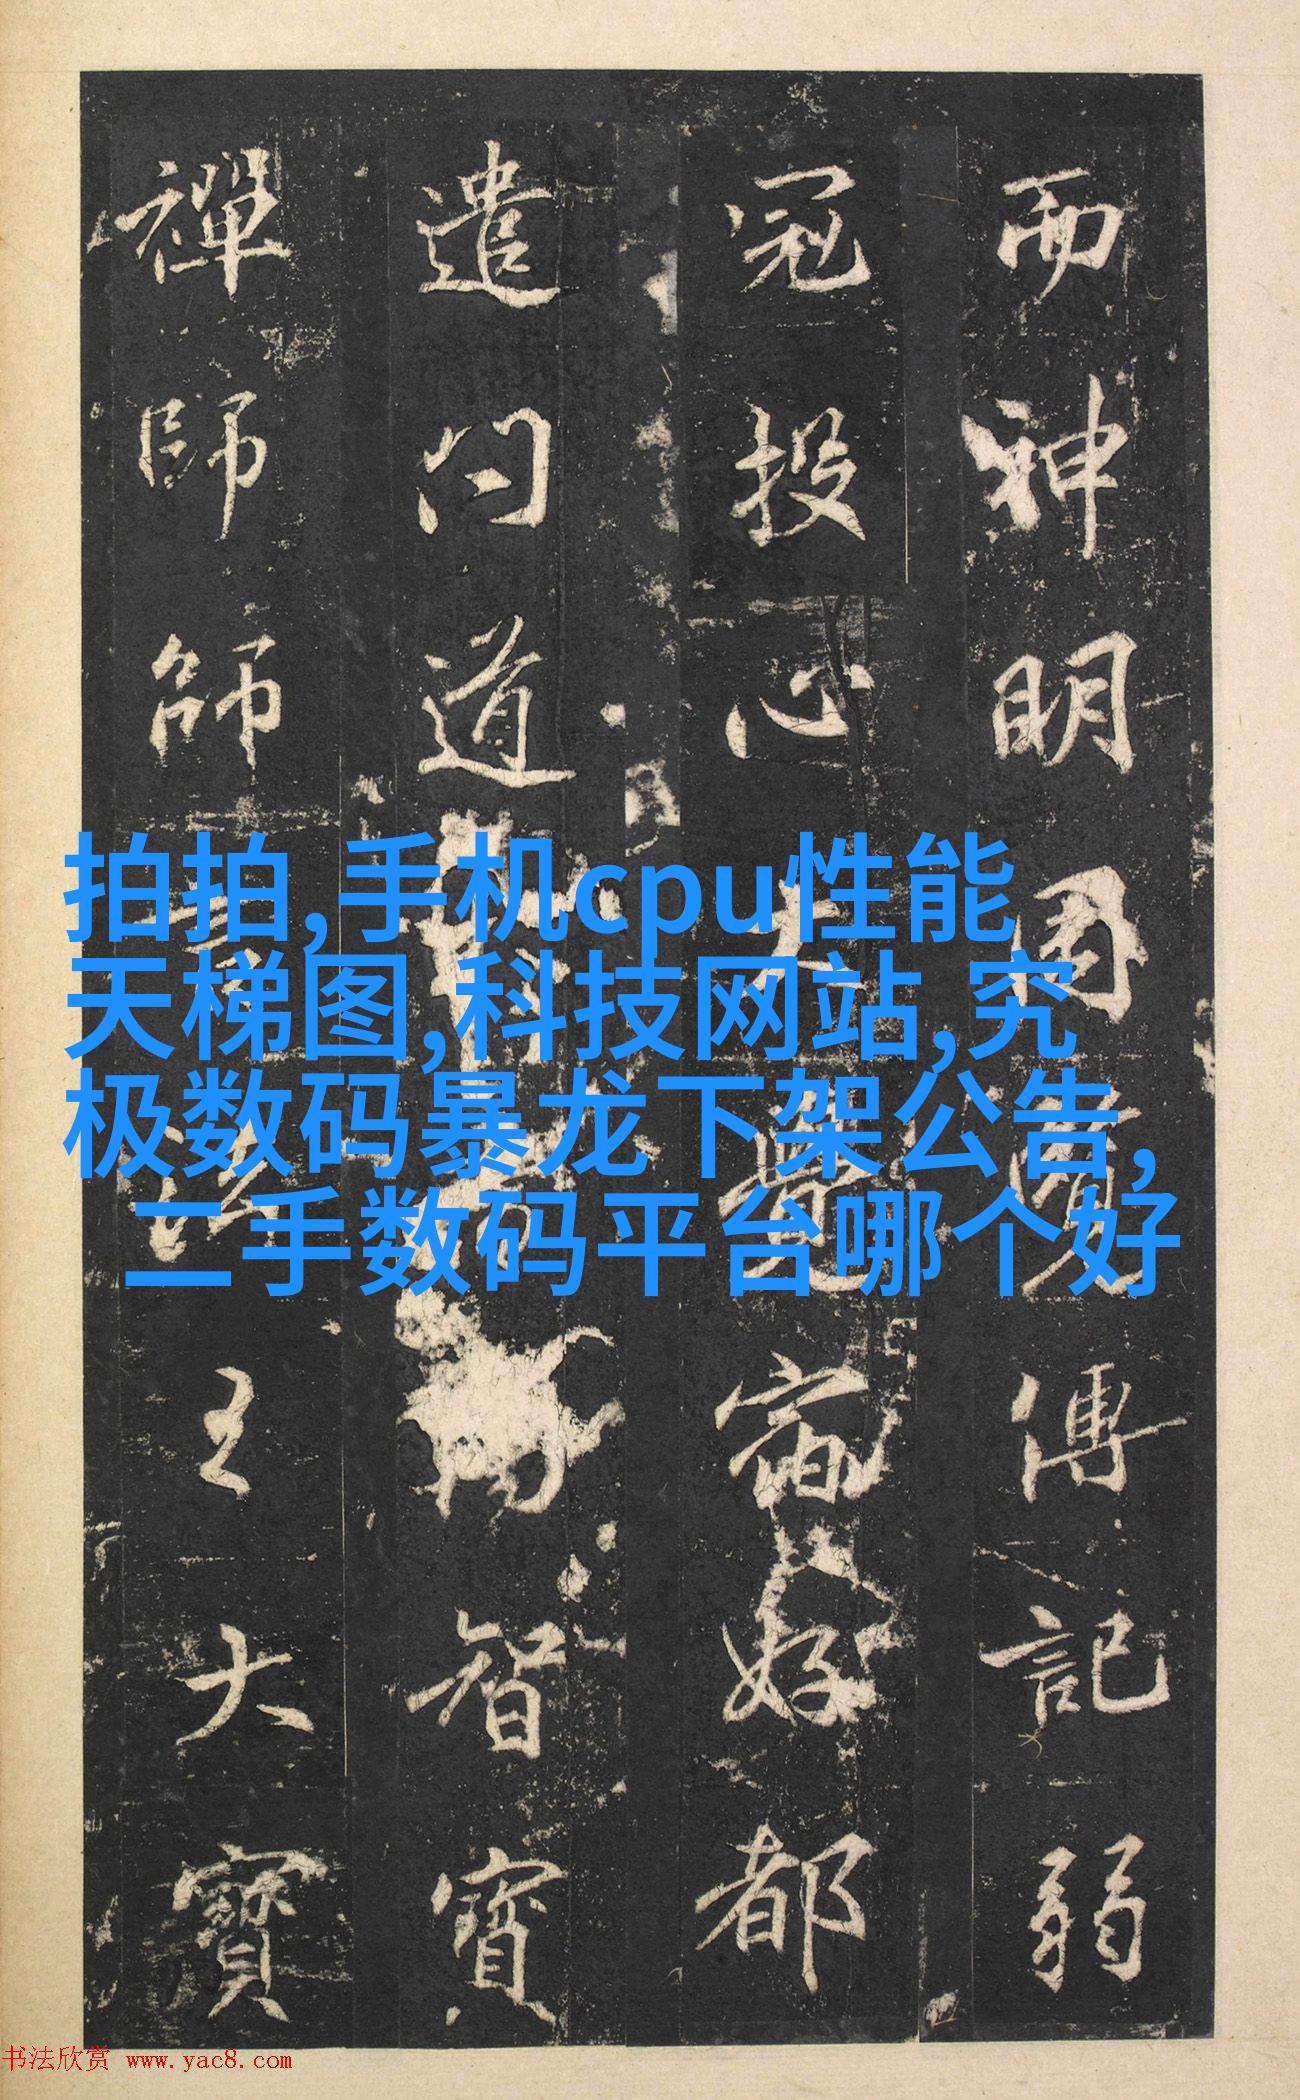 而神明周傳記弱
冠投心大覺宿好都
遣問道智寶
禪師師法王大寶
拍拍,手机cpu性能
天梯图,科技网站,究
极数码暴龙下架公告,
二手数码平台哪个好
书法欣赏 www.yac8.com